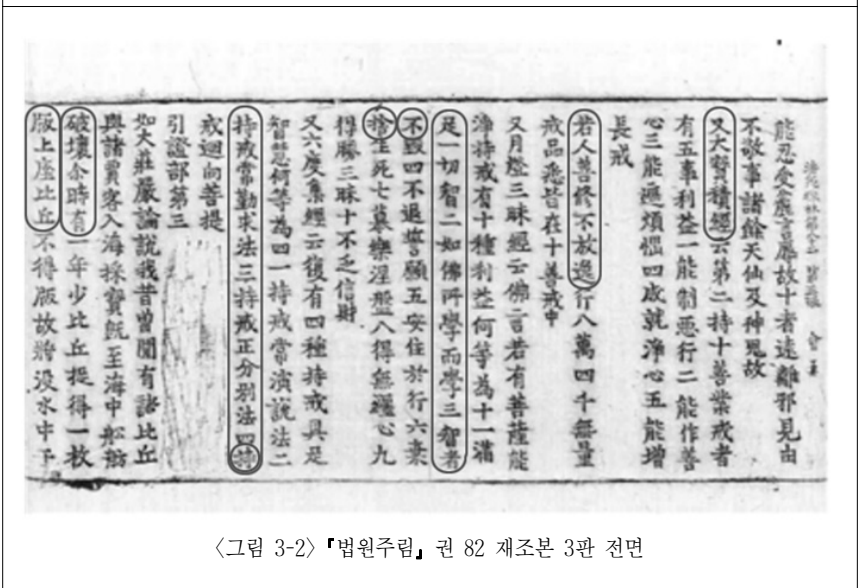 能忍受麁言辱故十者遠離邪見由
不敬事諸餘天仙及神鬼故
又大寶積經云第二持十善業戒者
有五事利益一能制惡行二能作善
心三能遮煩惱四成就淨心五能增
長戒
若人善修不放逸行八萬四千無量
戒品悉皆在十善戒中
又月燈三昧經云佛言若有菩薩能
淨持戒有十種利益何等為十一滿
足一切智二如佛所學而學三智者
不毀四不退誓願五安住於行六棄
捨生死七慕樂涅槃八得無纏心九
得勝三昧十不乏信財
又六度集經云復有四種持戒具足
智慧何等為四一持戒常演說法二
持戒常勤求法三持戒正分別法四持
戒迴向菩提
引證部第三
如大莊嚴論說我昔曾聞有諸比丘
與諸賈客入海採寶既至海中船舫
破壞尒時有一年少比丘提得一枚
版上座比丘不得版故將没水中于
〈그림 3-2〉『법원주림』 권 82 재조본 3판 전면